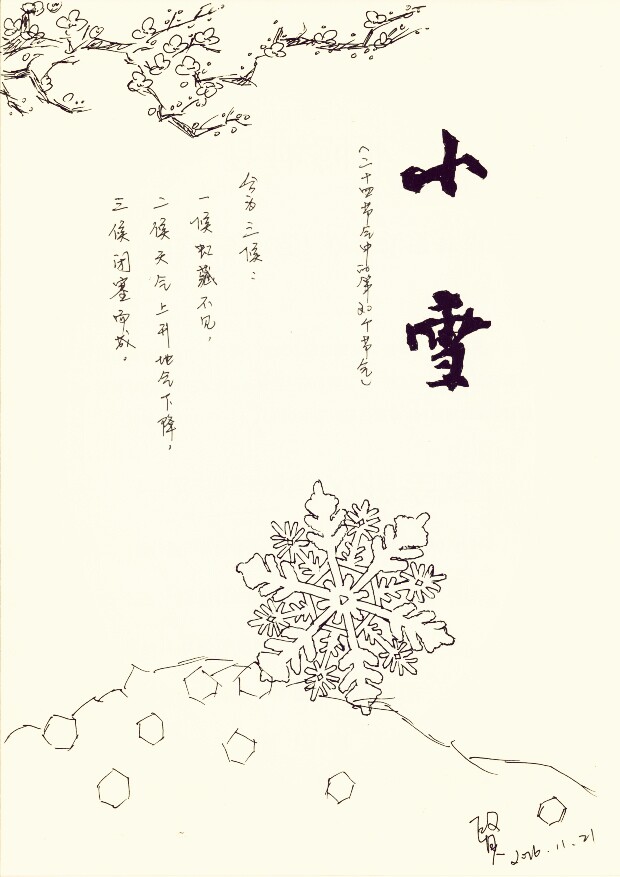 小雪
（二十四节气中的第20个节气）
分为三候：
一候虹藏不见，
二候天气上升地气下降，
三候闭塞而成。
2016.11.21